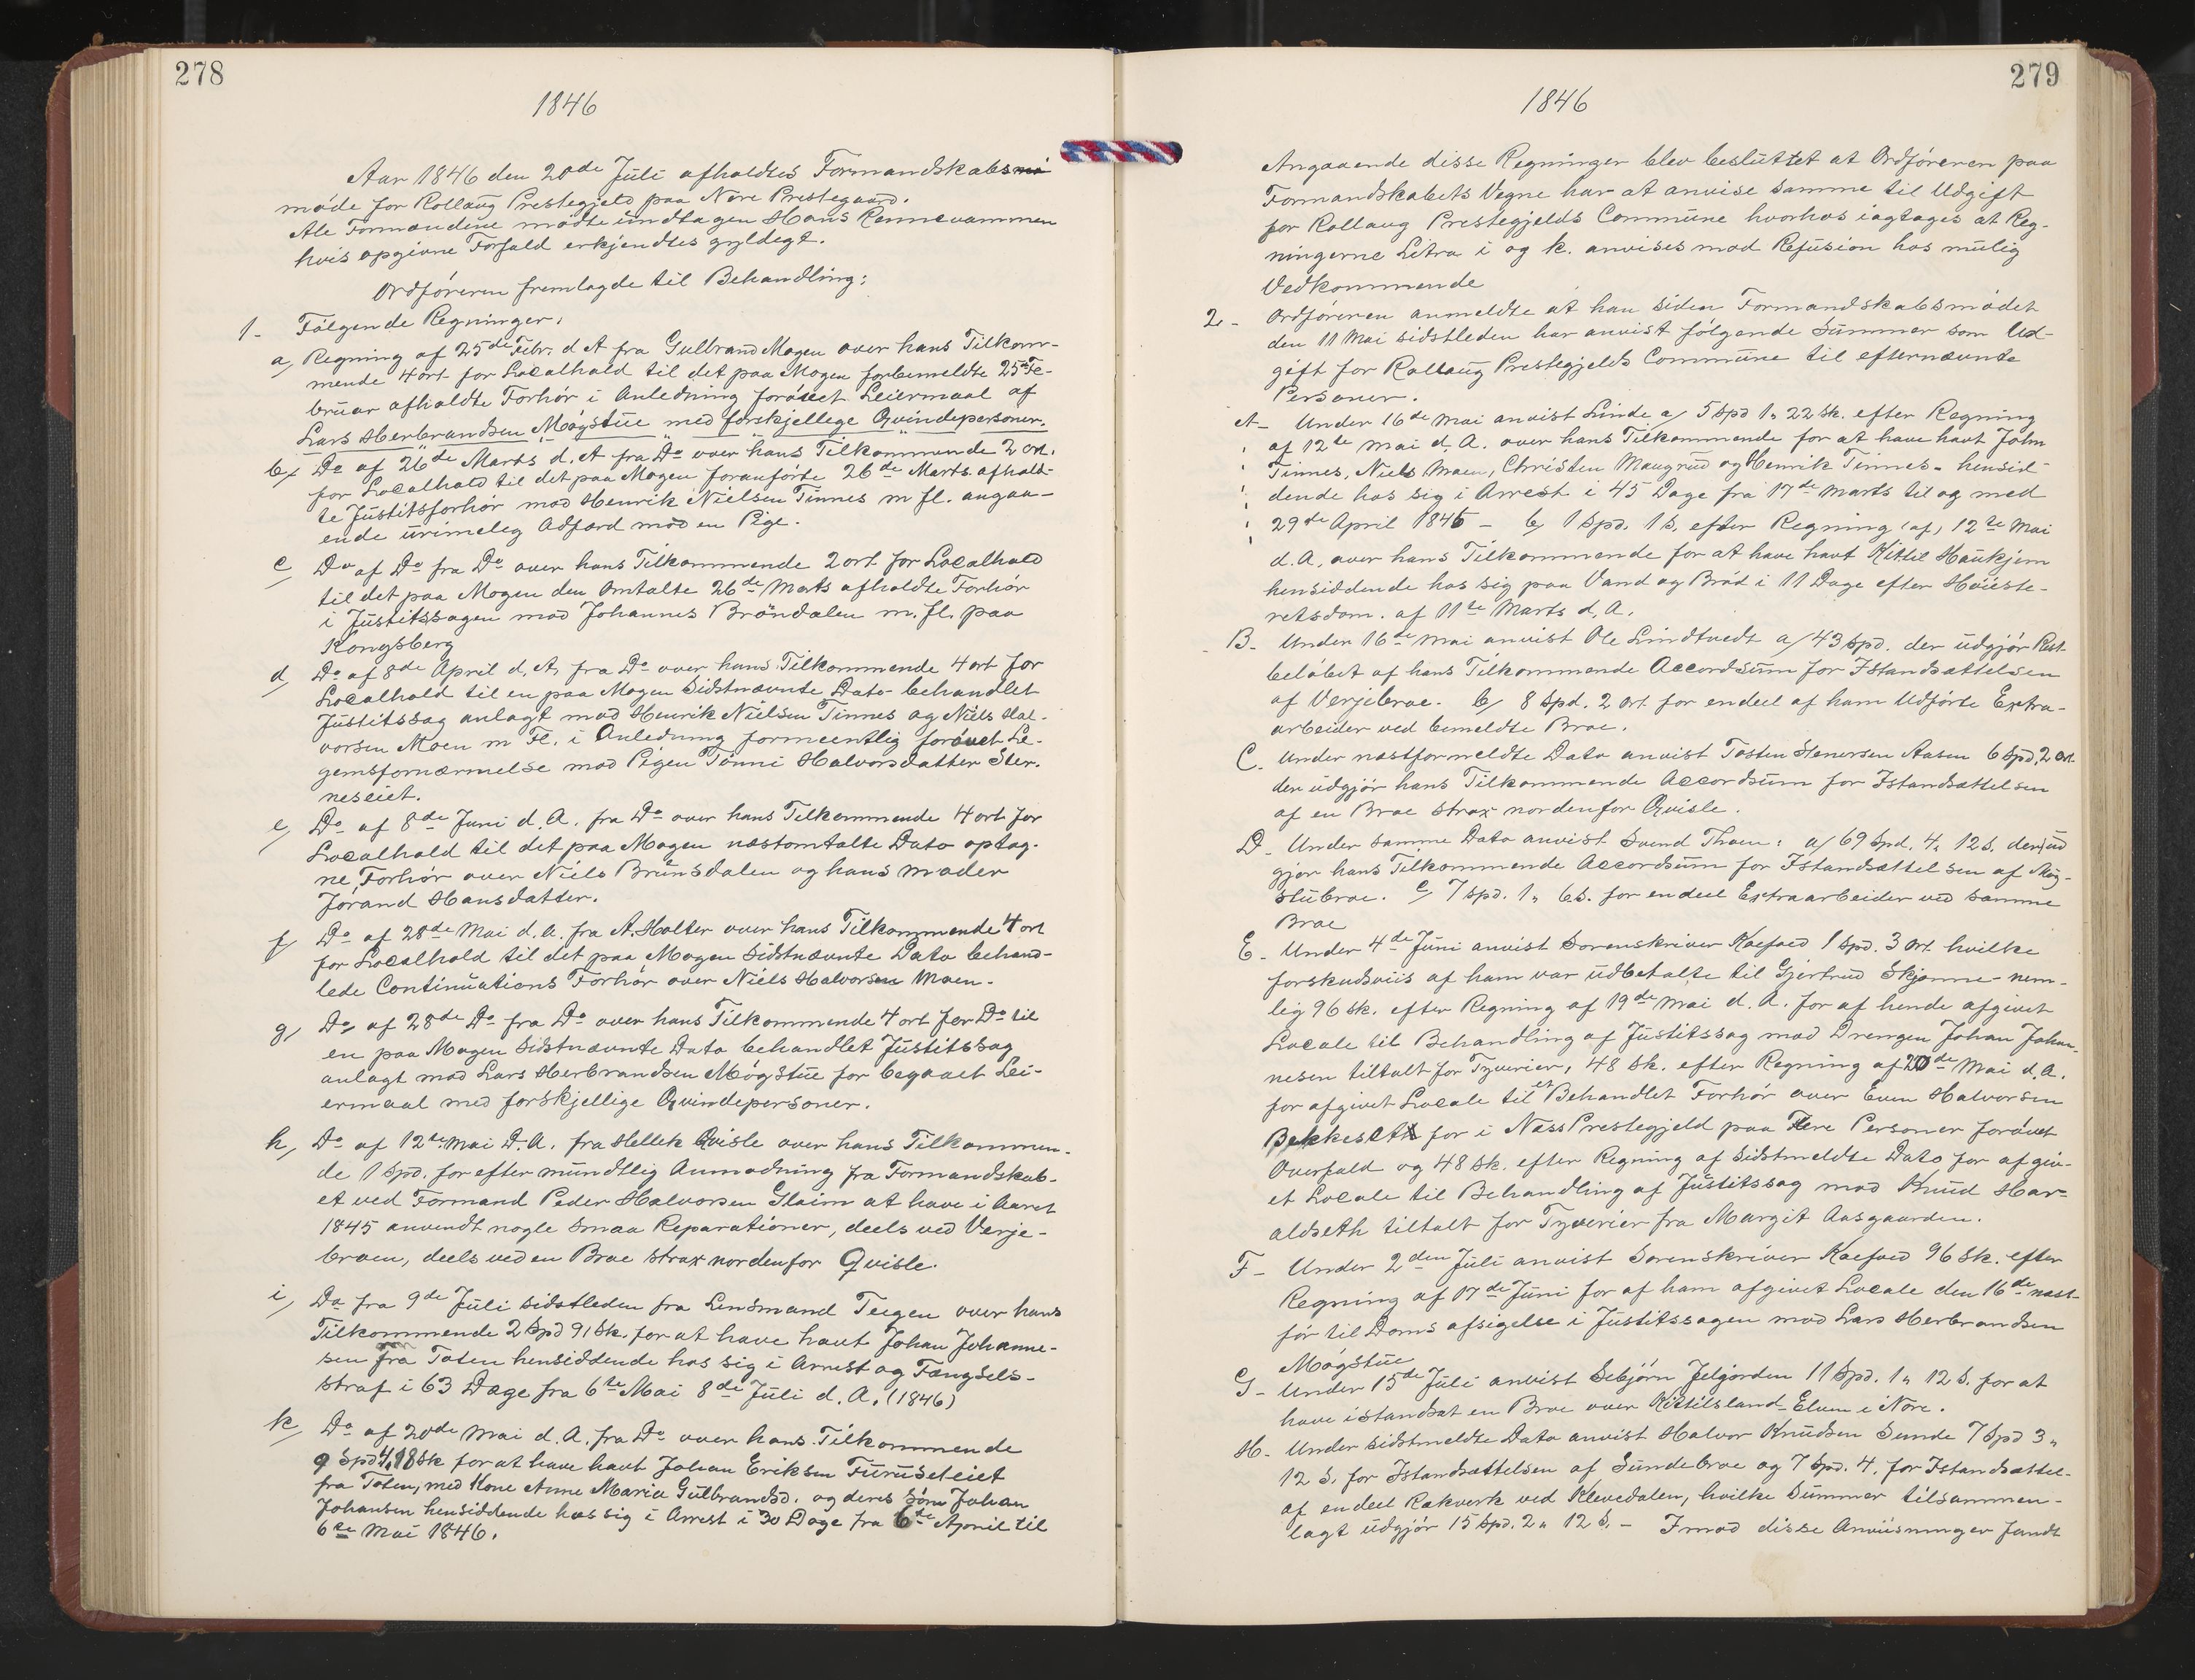 278
1846
Aar 1846 den 20de Juli afholdtes Formandskabsmö
möde for Rollaug Prestegjeld paa Nore Prestegaard.
Ale Formændene mødte undtagen Hans Rennevammen
hvis opgivne Forfald erkjendtes gyldegt.
Ordføreren fremlagde til Behandling:
1- Følgende Regninger:
a, Regning af 25de Febr. d A fra Gulbrand Mogen over hans Tilkom-
mende 4 ort for Localhold til det paa Mogen forbemeldte 25de Fe-
bruar afholdte Forhör i Anledning forövet Leiermaal af
Lars Herbrandsen Mögstue med forskjellege Qvindepersoner.
b, Do af 26de Marts d. A fra Do over hans Tilkommende 2 ort.
for Localhold til det paa Mogen foranførte 26de Marts afhold-
te Justitsforhör mod Henrik Nielsen Tinnes m fl. angaa-
ende urimeleg Adfærd mod en Pige.
c, Do af Do fra Do over hans Tilkommende 2 ort for Localhold
til det paa Mogen den Omtalte 26de Marts afholdte Forhör
i Justitssagen mod Johannes Bröndalen m. fl. paa
Kongsberg
d, Do af 8de April d. A, fra Do over hans Tilkommende 4 ort for
Localhold til en paa Mogen Sidstnævnte Dato behandlet
Justitssag anlagt mod Henrik Nielsen Tinnes og Niels Hal-
vorsen Moen m Fl. i Anledning formeentlig forövet Le-
gemsfornærmelse mod Pigen Tönni Halvorsdatter Ster-
neseiet.
e, Do af 8de Juni d. A. fra Do over hans Tilkommende 4 ort for
Localhold til det paa Mogen næstomtalte Dato optag-
ne Forhör over Niels Brunsdalen og hans moder
Jörand Hansdatter.
f, Do af 28de Mai d. a. fra A. Holter over hans Tilkommende 4 ort
for Localhold til det paa Mogen Sidstnævnte Dato behand-
lede Continuations Forhör over Niels Halvorsen Moen.
g, Do af 28de Do fra Do over hans Tilkommende 4 ort for Do til
en paa Mogen Sidstnævnte Dato behandlet Justitssag
anlagt mod Lars Herbrandsen Mögstue for begaaet Lei-
ermaal med forskjellige Qvindepersoner.
h, Do af 12te Mai D. A. fra Hellek Qvisle over hans Tilkommen-
de 1 Spd. for efter mundtlig Anmodning fra Formandskab-
et ved Formand Peder Halvorsen Glaim at have i Aaret
1845 anvendt nogle Smaa Reparationer, deels ved Verje-
broen, deels ved en Broe Strax nordenfor Qvisle.
i, Do fra 9de Juli sidstleden fra Lensmand Teigen over hans
Tilkommende 2 Spd 91 Sk. for at have havt Johan Johanne-
sen fra Toten hensiddende hos sig i Arrest og Fængsels-
straf i 63 Dage fra 6te Mai 8de Juli d. A. (1846)
k, Do af 20de Mai d. A. fra Do over hans Tilkommende
9 Spd 4, 18 Sk for at have havt Johan Eriksen Furuseteiet
fra Toten, med Kone Anne Maria Gulbrandsd. og deres Sön Johan
Johansen hensiddende hos sig i Arrest i 30 Dage fra 6te April til
6te Mai 1846.
279
1846
Angaaende disse Regninger blev besluttet at Ordføreren paa
Formandskabets Vegne har at anvise Samme til Udgift
for Rollaug Prestegjelds Commune hvorhos iagtages at Reg-
ningerne Litra i og k. anvises mod Refusion hos mulig
Vedkommende
2- Ordføreren anmeldte at han siden Formandskabsmødet
den 11 Mai sidstleden har anvist følgende Summer som Ud-
gift for Rollaug Prestegjelds Commune til efternævnte
Personer.
A- Under 16de Mai anvist Linde a/ 5 Spd 1" 22 Sk. efter Regning
af 12te Mai d. A. over hans Tilkommende for at have havt John
Tinnes, Niels Moen, Christen Maugrud og Henrik Tinnes - hensid-
dende hos sig i Arrest i 45 Dage fra 17de Marts til og med
29de April 1846 - b/ 1 Spd. 1 S. efter Regning (af) 12te Mai
d. A. over hans Tilkommende for at have havt Kittil Haukjem
hensiddende hos sig paa Vand og Bröd i 11 Dage efter Höieste-
retsdom. af 11te Marts d. A.
B- Under 16de Mai anvist Ole Lindtvedt a/ 43 Spd. der udgjör Rest-
belöbet af hans Tilkommende Accordsum for Istandsættelsen
af Verjebroe. b/ 8 Spd. 2 ort. for endeel af ham Udførte Extra-
arbeider ved bemeldte Broe.
C- Under næstformeldte Dato anvist Tosten Stenersen Aasen 6 Spd, 2 Ort.
der udgjör hans Tilkommende Accordsum for Istandsættelsen
af en Broe Strax nordenfor Qvisle.
D- Under Samme Dato anvist Svend Thoen: a/ 69 Spd. 4, 12 S. der ud
gjör hans Tilkommende Accordsum for Istandsættelsen af Mög-
stubroe. 7 Spd. 1" 6 S. for endeel Extraarbeider ved Samme
Broe
E- Under 4de Juni anvist Sorenskriver Koefoed 1 Spd. 3 Ort. hvilke
forskudsviis af ham var udbetalte til Gjertrud Skjønne - nem-
lig 96 Sk. efter Regning af 19de Mai d. A. for af hende afgivet
Locale til Behandling af Justitssag mod Drengen Johan Johan-
nesen tiltalt for Tyverier, 48 Sk. efter Regning af 20de Mai d. A.
for afgivet Locale til et Behandlet Forhör over Even Halvorsen
Bekkeseth for i Næss Prestegjeld paa Flere Personer forövet
Overfald og 48 Sk. efter Regning af Sidstmeldte Dato for afgiv-
et Locale til Behandling af Justitssag mod Knud Har-
aldseth tiltalt for Tyverier fra Margit Aasgaarden.
F- Under 2den Juli anvist Sorenskriver Koefoed 96 Sk. efter
Regning af 17de Juni for af ham afgivet Locale den 16de næst-
för til Doms afsigelse i Justitssagen mod Lars Herbrandsen
Mögstue
G- Under 15de Juli anvist Sebjörn Jelgjorden 11 Spd. 1" 12 S. for at
have istandsat en Broe over Kittilsland-Elven i Nore.
H- Under Sidstmeldte Dato anvist Halvor Knudsen Sunde 7 Spd 3"
12 S. for Istandsættelsen af Sundebroe og 7 Spd. 4, for Istandsættel-
af endeel Rækverk ved Klevedalen, hvilke Summer tilsammen-
lagt udgjör 15 Spd. 2" 12 S. - Imod disse Anviisninger fandt